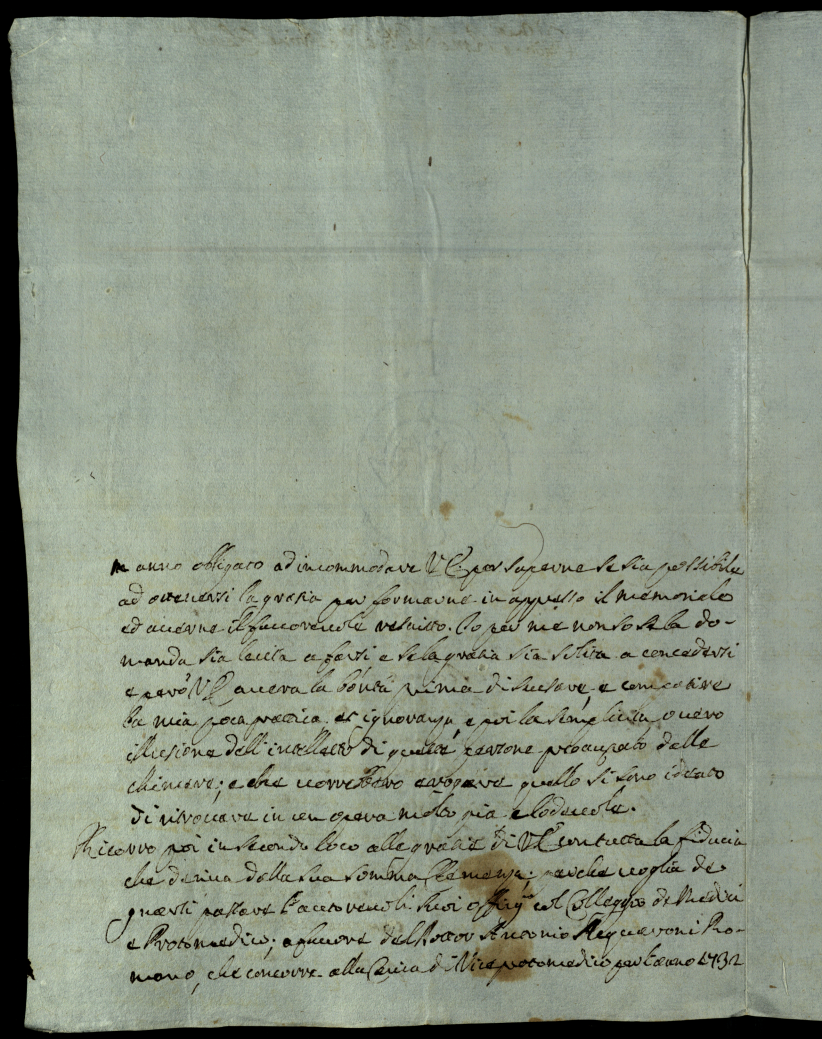 m'anno obligato ad incommodare V.E. per saperne se sia possibile
ad ottenersi la gratia per formarne in appresso il memoriale
ed averne il favorevole rescritto. Io per me non so se la do-
manda sia lecita a farsi e se la gratia sia solita a concedersi
e però V.E. avera la bontà prima di scusare, e compatire
la mia poca prattica et ignoranza e poi la simplicità, overo
illusione dell'intelletto di queste persone preoccupato dalle
chimere; e che vorrebbero erogare quello si sono ideato
di ritrovare in un opera molto pia e lodevole.
Ricorro poi in secondo loco alle gratie di V.E. con tutta la fiducia
che deriva dalla sua somma Clemenza; perche voglia de-
gnarsi passare l'autorevoli suoi offizij col Colleggio de Medici
e Protomedico; a favore del Dottor Antonio Romano,
mano, che concorre alla Carica di Viceprotomedico per l'anno 1732